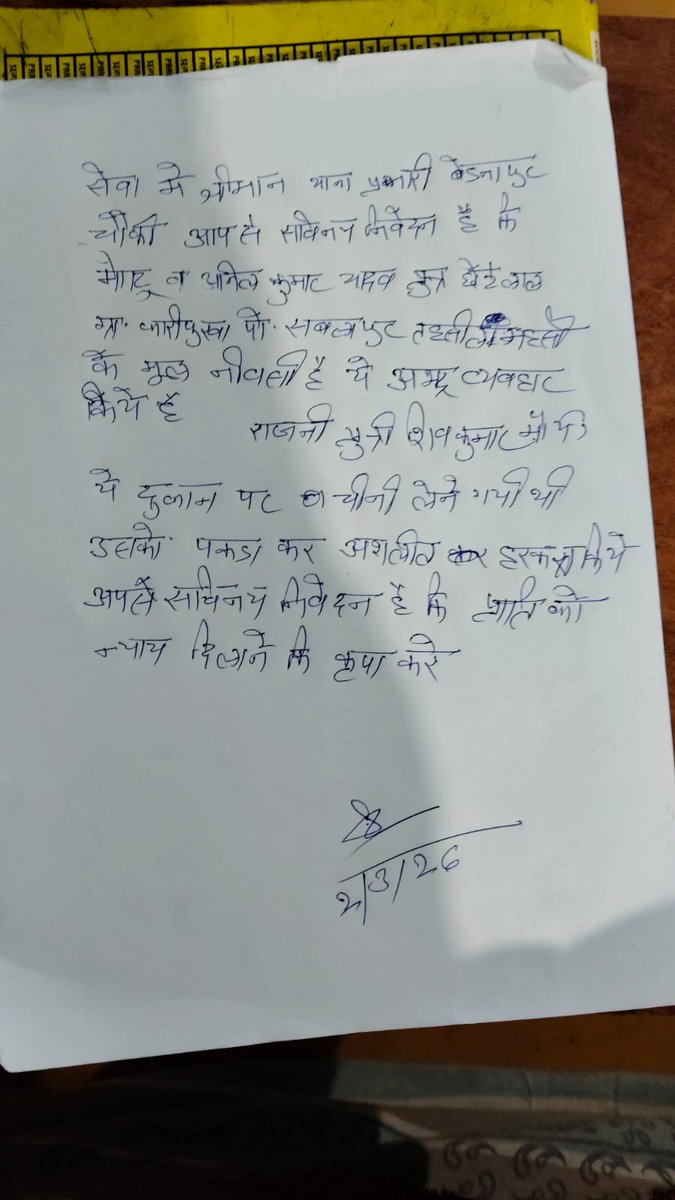 सेवा मे श्रीमान थाना प्रभारी बेडनापुर
चौकी आप से सविनय निवेदन है कि
व अनिल कुमार यादव पुत्र छोटे लाल
ग्रा. कारीपुरवा पो. सबलपुर तहसील महसी
के मूल नीवासी है ये अभद्र व्यवहार
किये है
राजनी पुत्री शिव कुमार मौर्य
ये दुकान पर चीनी लेने गयी थी
उसको पकडा कर अशलील हरकत किये
आपसे सविनय निवेदन है कि प्रार्ति को
न्याय दिलाने कि कृपा करे
2/3/26